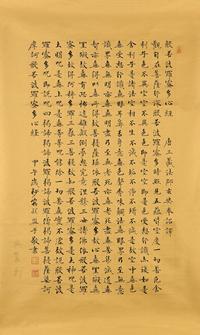 般若波羅蜜多心經 唐三藏法師玄奘奉詔譯
觀自在菩薩行深般若波羅蜜多時照見五蘊皆空度一切苦厄舍
利子色不異空空不異色色即是空空即是色受想行識亦復如是
舍利子是諸法空相不生不滅不垢不淨不增不減是故空中無色
無受想行識無眼耳鼻舌身意無色聲香味觸法無眼界乃至無意
識界無無明亦無無明盡乃至無老死亦無老死盡無苦集滅道無
智亦無得以無所得故菩提薩埵依般若波羅蜜多故心無罣礙無
罣礙故無有恐怖遠離顛倒夢想究竟涅槃三世諸佛依般若波羅
蜜多故得阿耨多羅三藐三菩提故知般若波羅蜜多是大神咒是大
明咒是無上咒是無等等咒能除一切苦真實不虛故說般若波
羅蜜多咒即說咒曰揭諦揭諦波羅揭諦波羅僧揭諦菩提薩婆訶
摩訶般若波羅蜜多心經 甲午歲秋 敬書